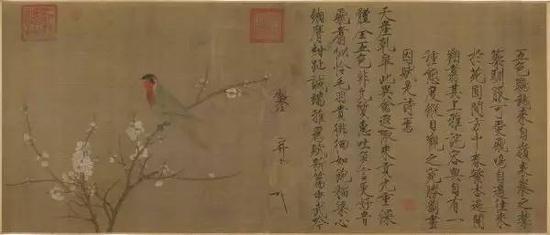 五色鸚鵡來自嶺表養之禁
籞馴服可愛飛鳴自適往來
於苑囿間方中春繁杏遍開
翔翥其上雅詫容與自有一
種態度縱目觀之宛勝圖畫
因賦是詩焉
天産乾皋此異禽遐陬來貢九重深
體全五色非凡質惠吐多言更好音
飛翥似憐毛羽貴徘徊如飽稻粱心
緗膺紺趾誠端雅為賦新篇步武吟